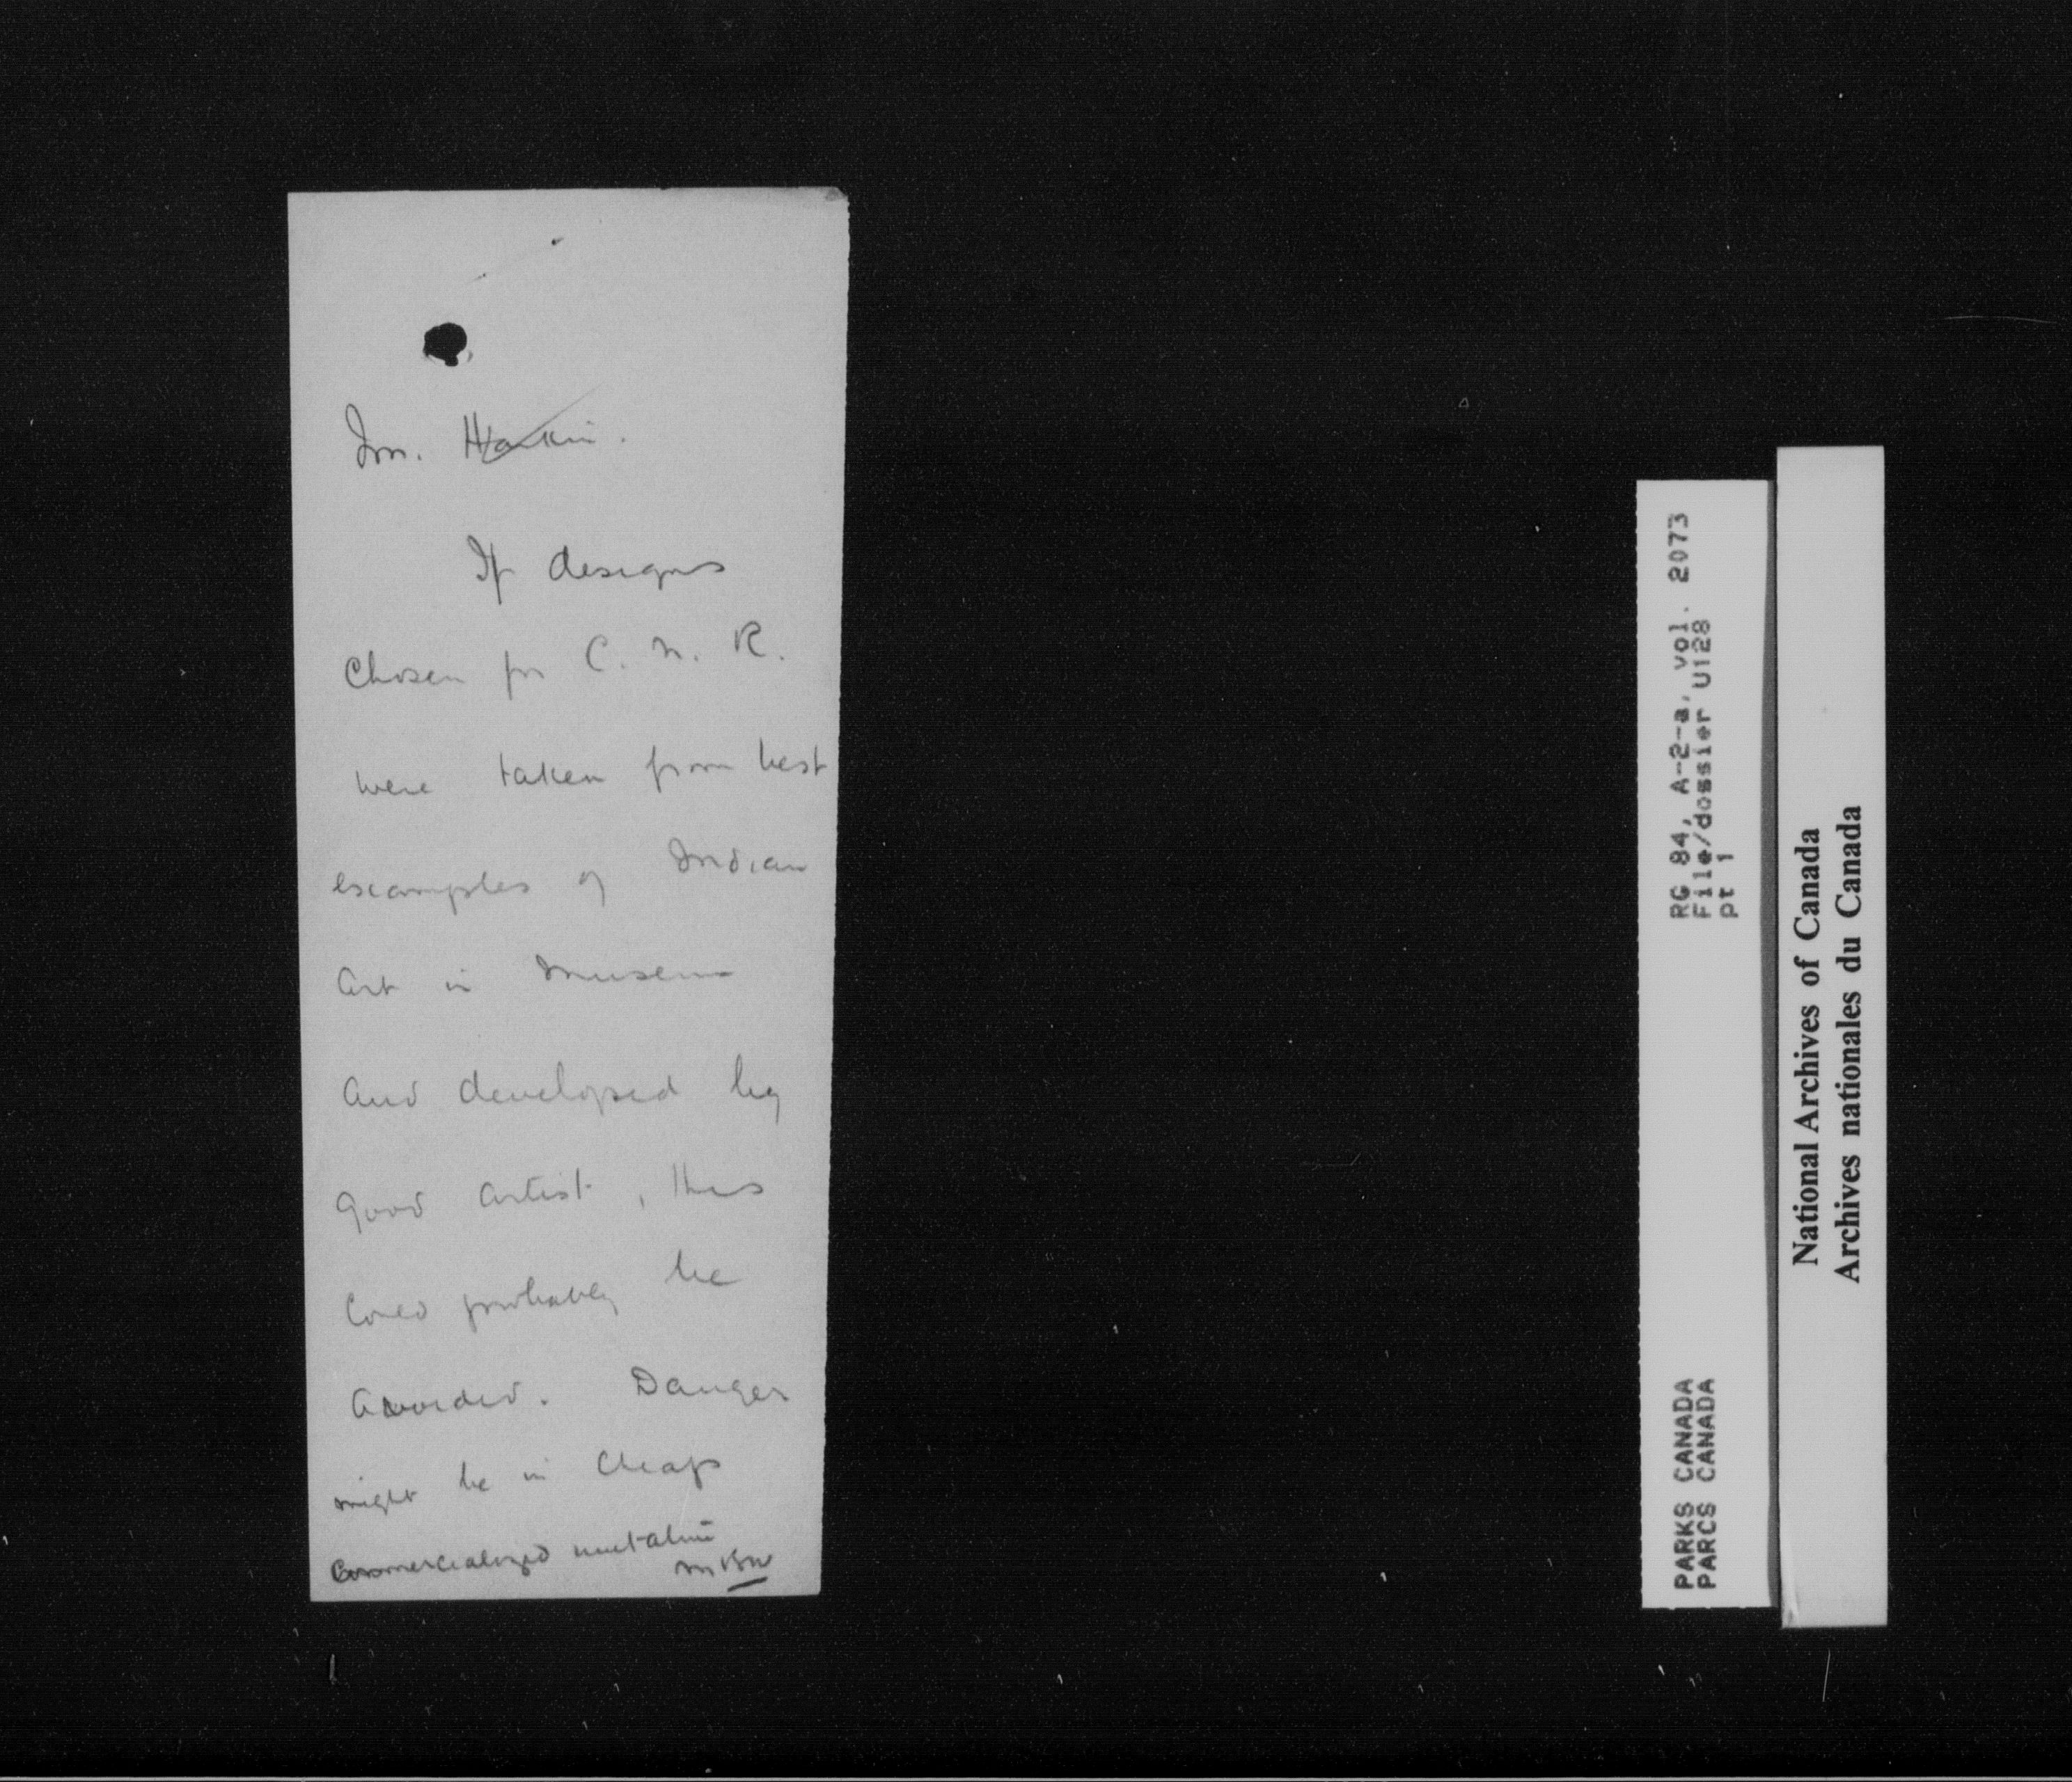 Mr. Harkin.
If designs
Chosen for C. N. R.
were taken from best
examples of Indian
art in Museum
and developed by
good artist, this
could probably be
avoided. Danger
might be in cheap
commercialized imitation
MBW
RG 84, A-2-a, vol. 2073
File/dossier U128
pt 1
PARKS CANADA
PARCS CANADA
National Archives of Canada
Archives nationales du Canada